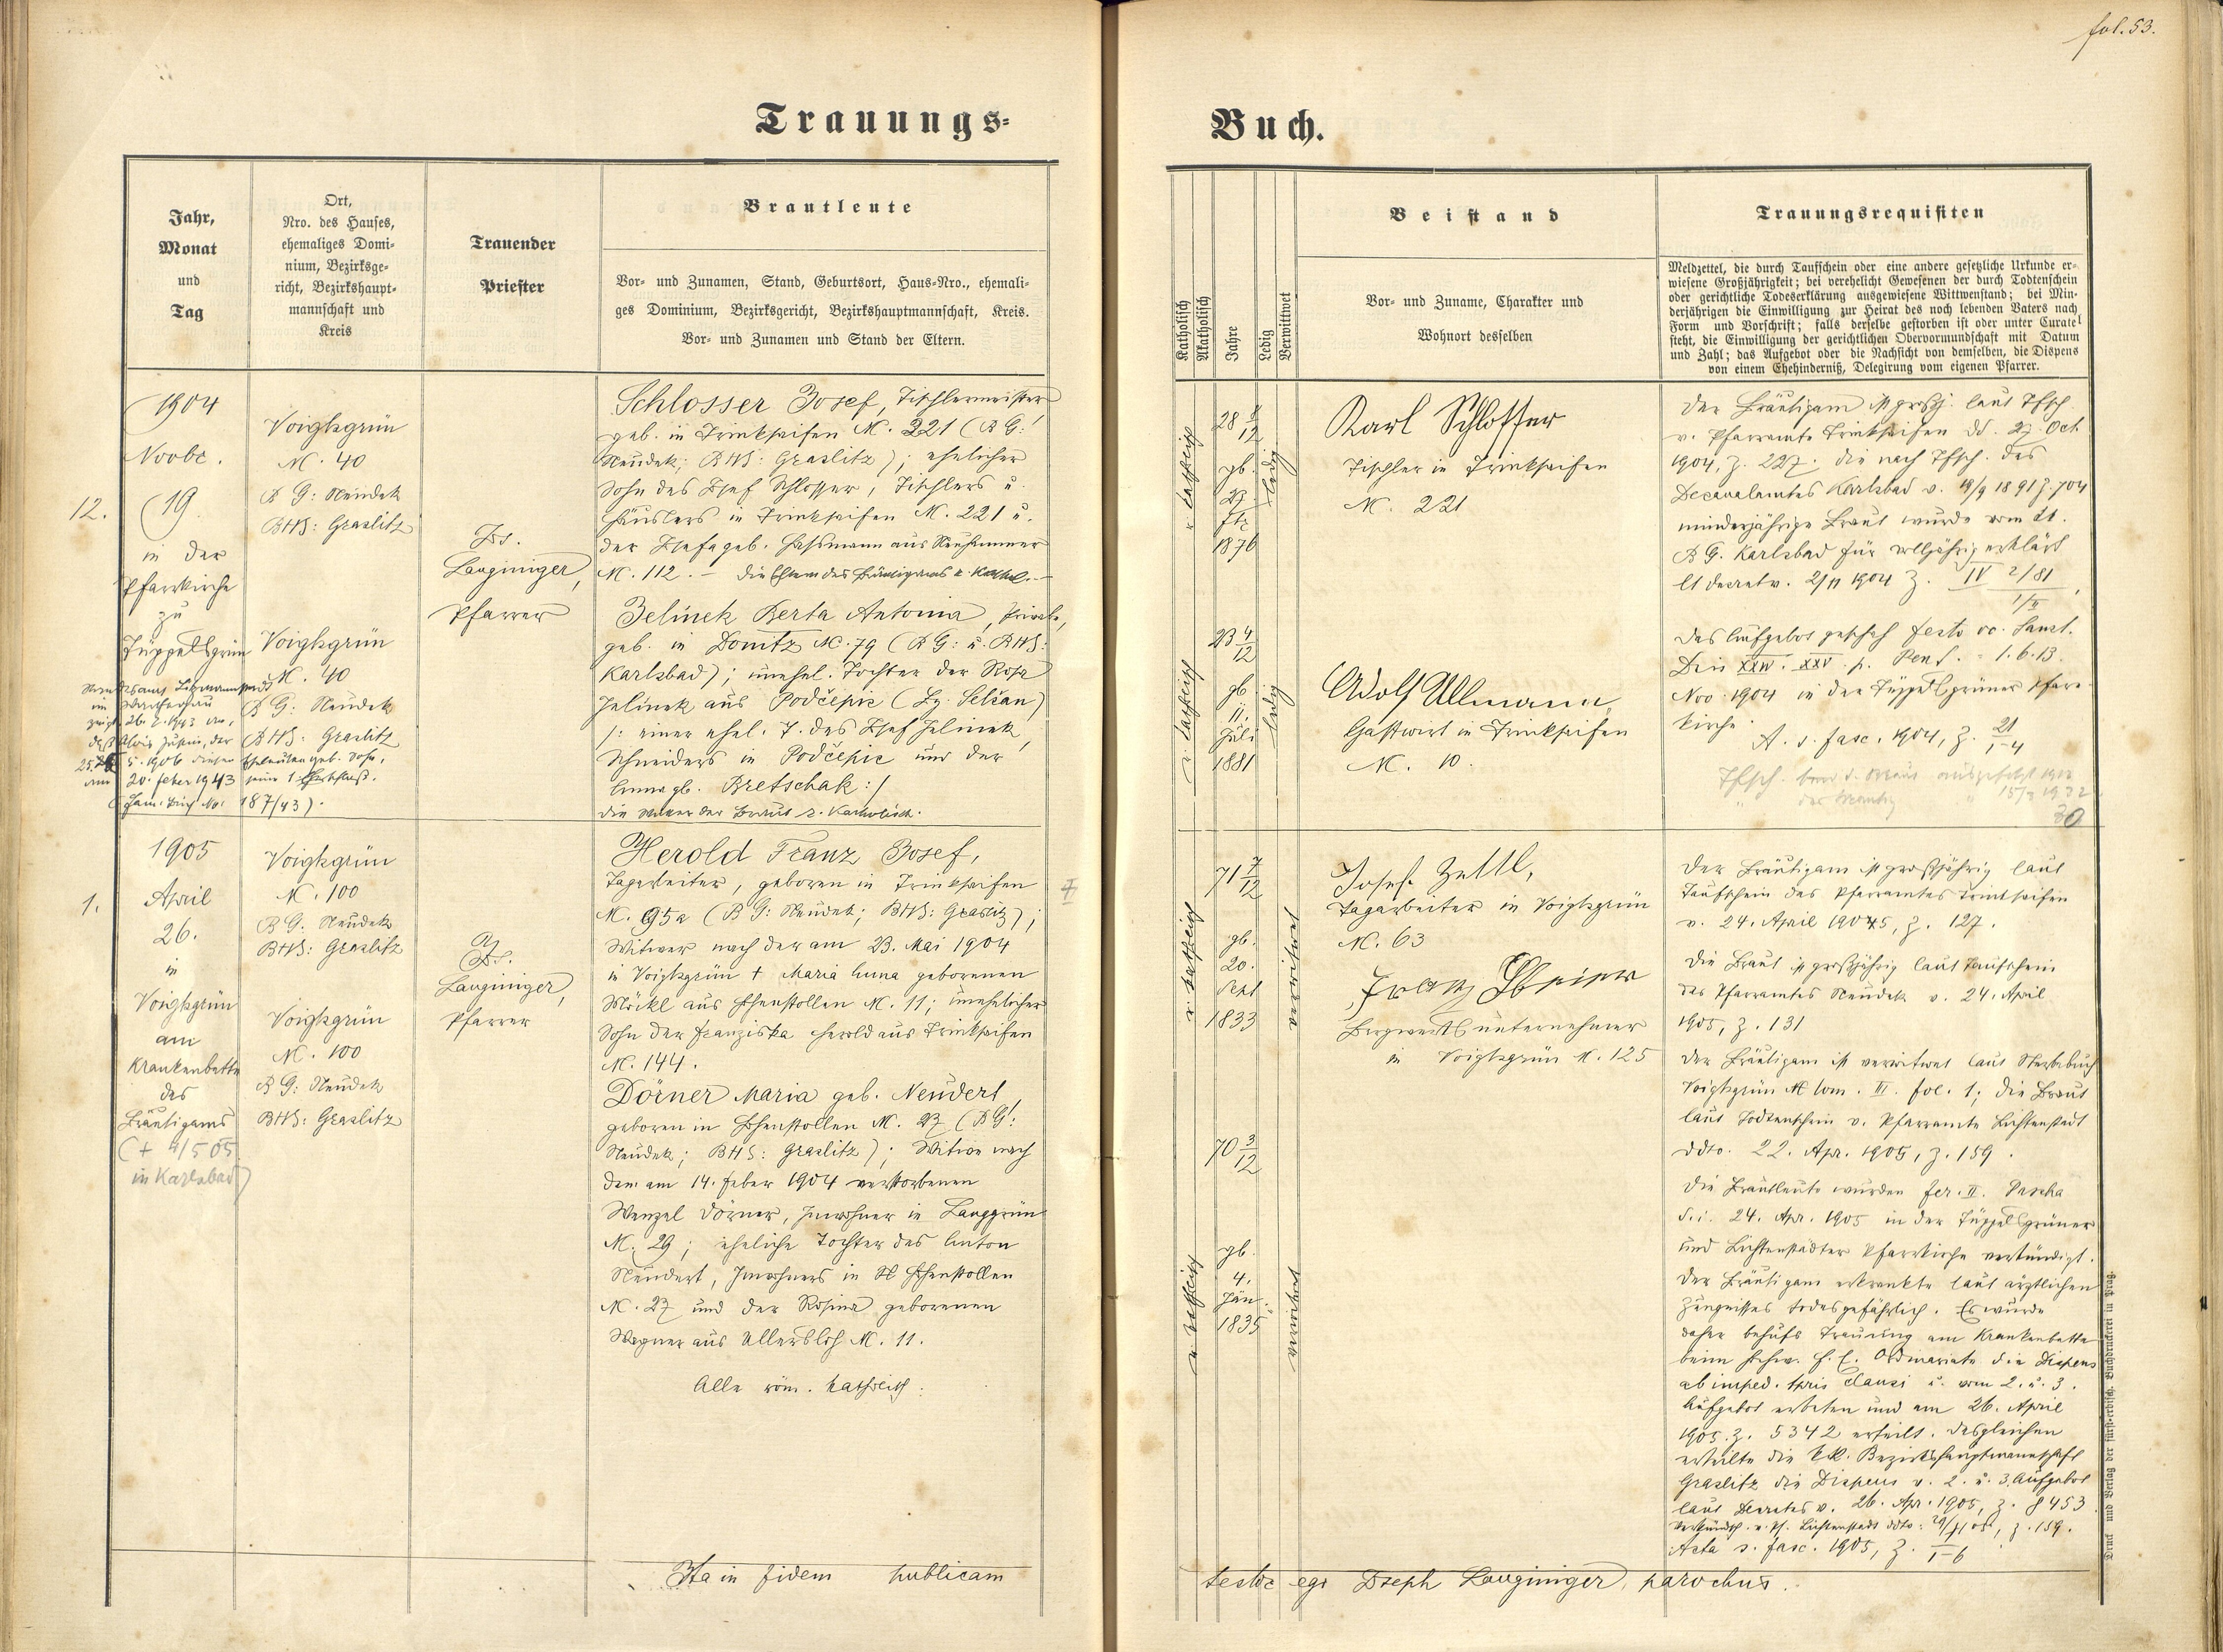 fol. 53.
Trauungs-
Buch.
Jahr,
Monat
und
Tag
Ort,
Nro. des Hauses,
ehemaliges Domi-
nium, Bezirksge-
richt, Bezirkshaupt-
mannschaft und
Kreis
Trauender
Priester
Brautleute
Vor- und Zunamen, Stand, Geburtsort, Haus-Nro., ehemali-
ges Dominium, Bezirksgericht, Bezirkshauptmannschaft, Kreis.
Vor- und Zunamen und Stand der Eltern.
Katholisch
Akatholisch
Jahre
Ledig
Verwittwet
Beistand
Vor- und Zuname, Charakter und
Wohnort desselben
Trauungsrequisiten
Meldzettel, die durch Taufschein oder eine andere gesetzliche Urkunde er-
wiesene Großjährigkeit; bei verehelicht Gewesenen der durch Todtenschein
oder gerichtliche Todeserklärung ausgewiesene Wittwenstand; bei Min-
derjährigen die Einwilligung zur Heirat des noch lebenden Vaters nach
Form und Vorschrift; falls derselbe gestorben ist oder unter Curatel
steht, die Einwilligung der gerichtlichen Obervormundschaft mit Datum
und Zahl; das Aufgebot oder die Nachsicht von demselben, die Dispens
von einem Ehehinderniß, Delegirung vom eigenen Pfarrer.
12.
1904
Novbr.
19.
in der
Pfarrkirche
zu
Tüppelsgrün
Voigtsgrün
N. 40
BG: Neudek
BHS: Graslitz
Voigtsgrün
N. 40
BG: Neudek
BHS: Graslitz
20. Feber 1943
187/43).
Jos.
Lauginiger,
Pfarrer
Schlosser Josef, Tischlermeister
geb. in Trinkseifen N. 221 (BG:
Neudek; BHS: Graslitz); ehelicher
Sohn des Josef Schlosser, Tischlers u.
Häuslers in Trinkseifen N. 221 u.
der Josefa geb. Hassmann aus Neuhammer
N. 112. – die Eltern des Bräutigams r. kathol. –
Jelinek Berta Antonia, Private,
geb. in Donitz N. 79 (BG: u. BHS:
Karlsbad); unehel. Tochter der Rosa
Jelinek aus Podčepic (Bz. Selčan)
/: einer ehel. T. des Josef Jelinek,
Schneiders in Podčepic und der
Anna gb. Bretschak :/
die Mutter der Braut r. katholisch.
r. katholisch
28 8/12
gb.
27.
Fbr.
1876
ledig
r. katholisch
23 4/12
gb
11.
Juli
1881
ledig
Karl Schlosser
Tischler in Trinkseifen
N. 221
Adolf Ullmann
Gastwirt in Trinkseifen
N. 10.
Der Bräutigam ist großj. laut Tfsch.
v. Pfarramte Trinkseifen dd. 27. Oct
1904, Z. 227. die nach Tfsch. des
Decanalamtes Karlsbad v. 18/9 1891 Z. 704
minderjährige Braut wurde vom
BG. Karlsbad für volljährig erklärt
lt Decret v. 2/11 1904 Z. IV 2/81
Das Aufgebot geschah festo oo. Sanct.
Dris XXIV. XXV. p. Pent. = 1. 6. 13.
Nov. 1904 in der Tüppelsgrüner Pfarr-
kirche.
A. s. fasc. 1904, Z. 21/1-4
30
1.
1905
April
26.
in
Voigtsgrün
am
Krankenbette
des
Bräutigams
(+ 4/5 05
in Karlsbad)
Voigtsgrün
N. 100
BG. Neudek
BHS: Graslitz
Voigtsgrün
N. 100
BG: Neudek
BHS: Graslitz
Jos.
Lauginiger,
Pfarrer
Herold Franz Josef,
Tagarbeiter, geboren in Trinkseifen
N. 95a (BG: Neudek; BHS: Graslitz);
Witwer nach der am 23. Mai 1904
in Voigtsgrün † Maria Anna geborenen
Möckl aus Hohenstollen N. 11; unehelicher
Sohn der Franziska Herold aus Trinkseifen
N. 144.
Dörner Maria geb. Neudert
geboren in Hohenstollen N. 27 (BG:
Neudek; BHS: Graslitz); Witwe nach
dem am 14. Feber 1904 verstorbenen
Wenzel Dörner, Inwohner in Langgrün
N. 29; eheliche Tochter des Anton
Neudert, Inwohners in Hohenstollen
N. 27 und der Rosina geborenen
Wagner aus Ullersloh N. 11.
Alle röm. katholisch.
r. katholisch
71 7/12
gb.
20.
Sept
1833
verwitwet
r. katholisch
70 3/12
gb.
4.
Jän.
1835
verwitwet
Josef Zettl,
Tagarbeiter in Voigtsgrün
N. 63
Bergwerksunternehmer
in Voigtsgrün N. 125
Der Bräutigam ist großjährig laut
Taufschein des Pfarramtes Trinkseifen
v. 24. April 1905, Z. 127.
Die Braut ist großjährig laut Taufschein
des Pfarramtes Neudek v. 24. April
1905, Z. 131
Der Bräutigam ist verwitwet laut Sterbebuch
Voigtsgrün tom. III. fol. 1; die Braut
laut Todtenschein v. Pfarramte Lichtenstadt
ddto. 22. Apr. 1905, Z. 159.
Die Brautleute wurden fer. II. Pascha
d. i. 24. Apr. 1905 in der Tüppelsgrüner
und Lichtenstädter Pfarrkirche verkündigt.
Der Bräutigam erkrankte laut ärztlichen
Zeugnisses todesgefährlich. Es wurde
daher behufs Trauung am Krankenbette
beim hochw. f. e. Ordinariate die Dispens
ab imped. tpris clausi u. vom 2. u. 3.
Aufgebot erbeten und am 26. April
1905 Z. 5342 erteilt. Desgleichen
erteilte die k.k. Bezirkshauptmannschaft
Graslitz die Dispens v. 2. u. 3. Aufgebot
laut Decretes v. 26. Apr. 1905, Z. 8453
Acta s. fasc. 1905, Z. 1-6
Ita in fidem publicam
testor ego Joseph Lauginiger, parochus.
Druck und Verlag der fürst-erbisch. Buchdruckerei in Prag.